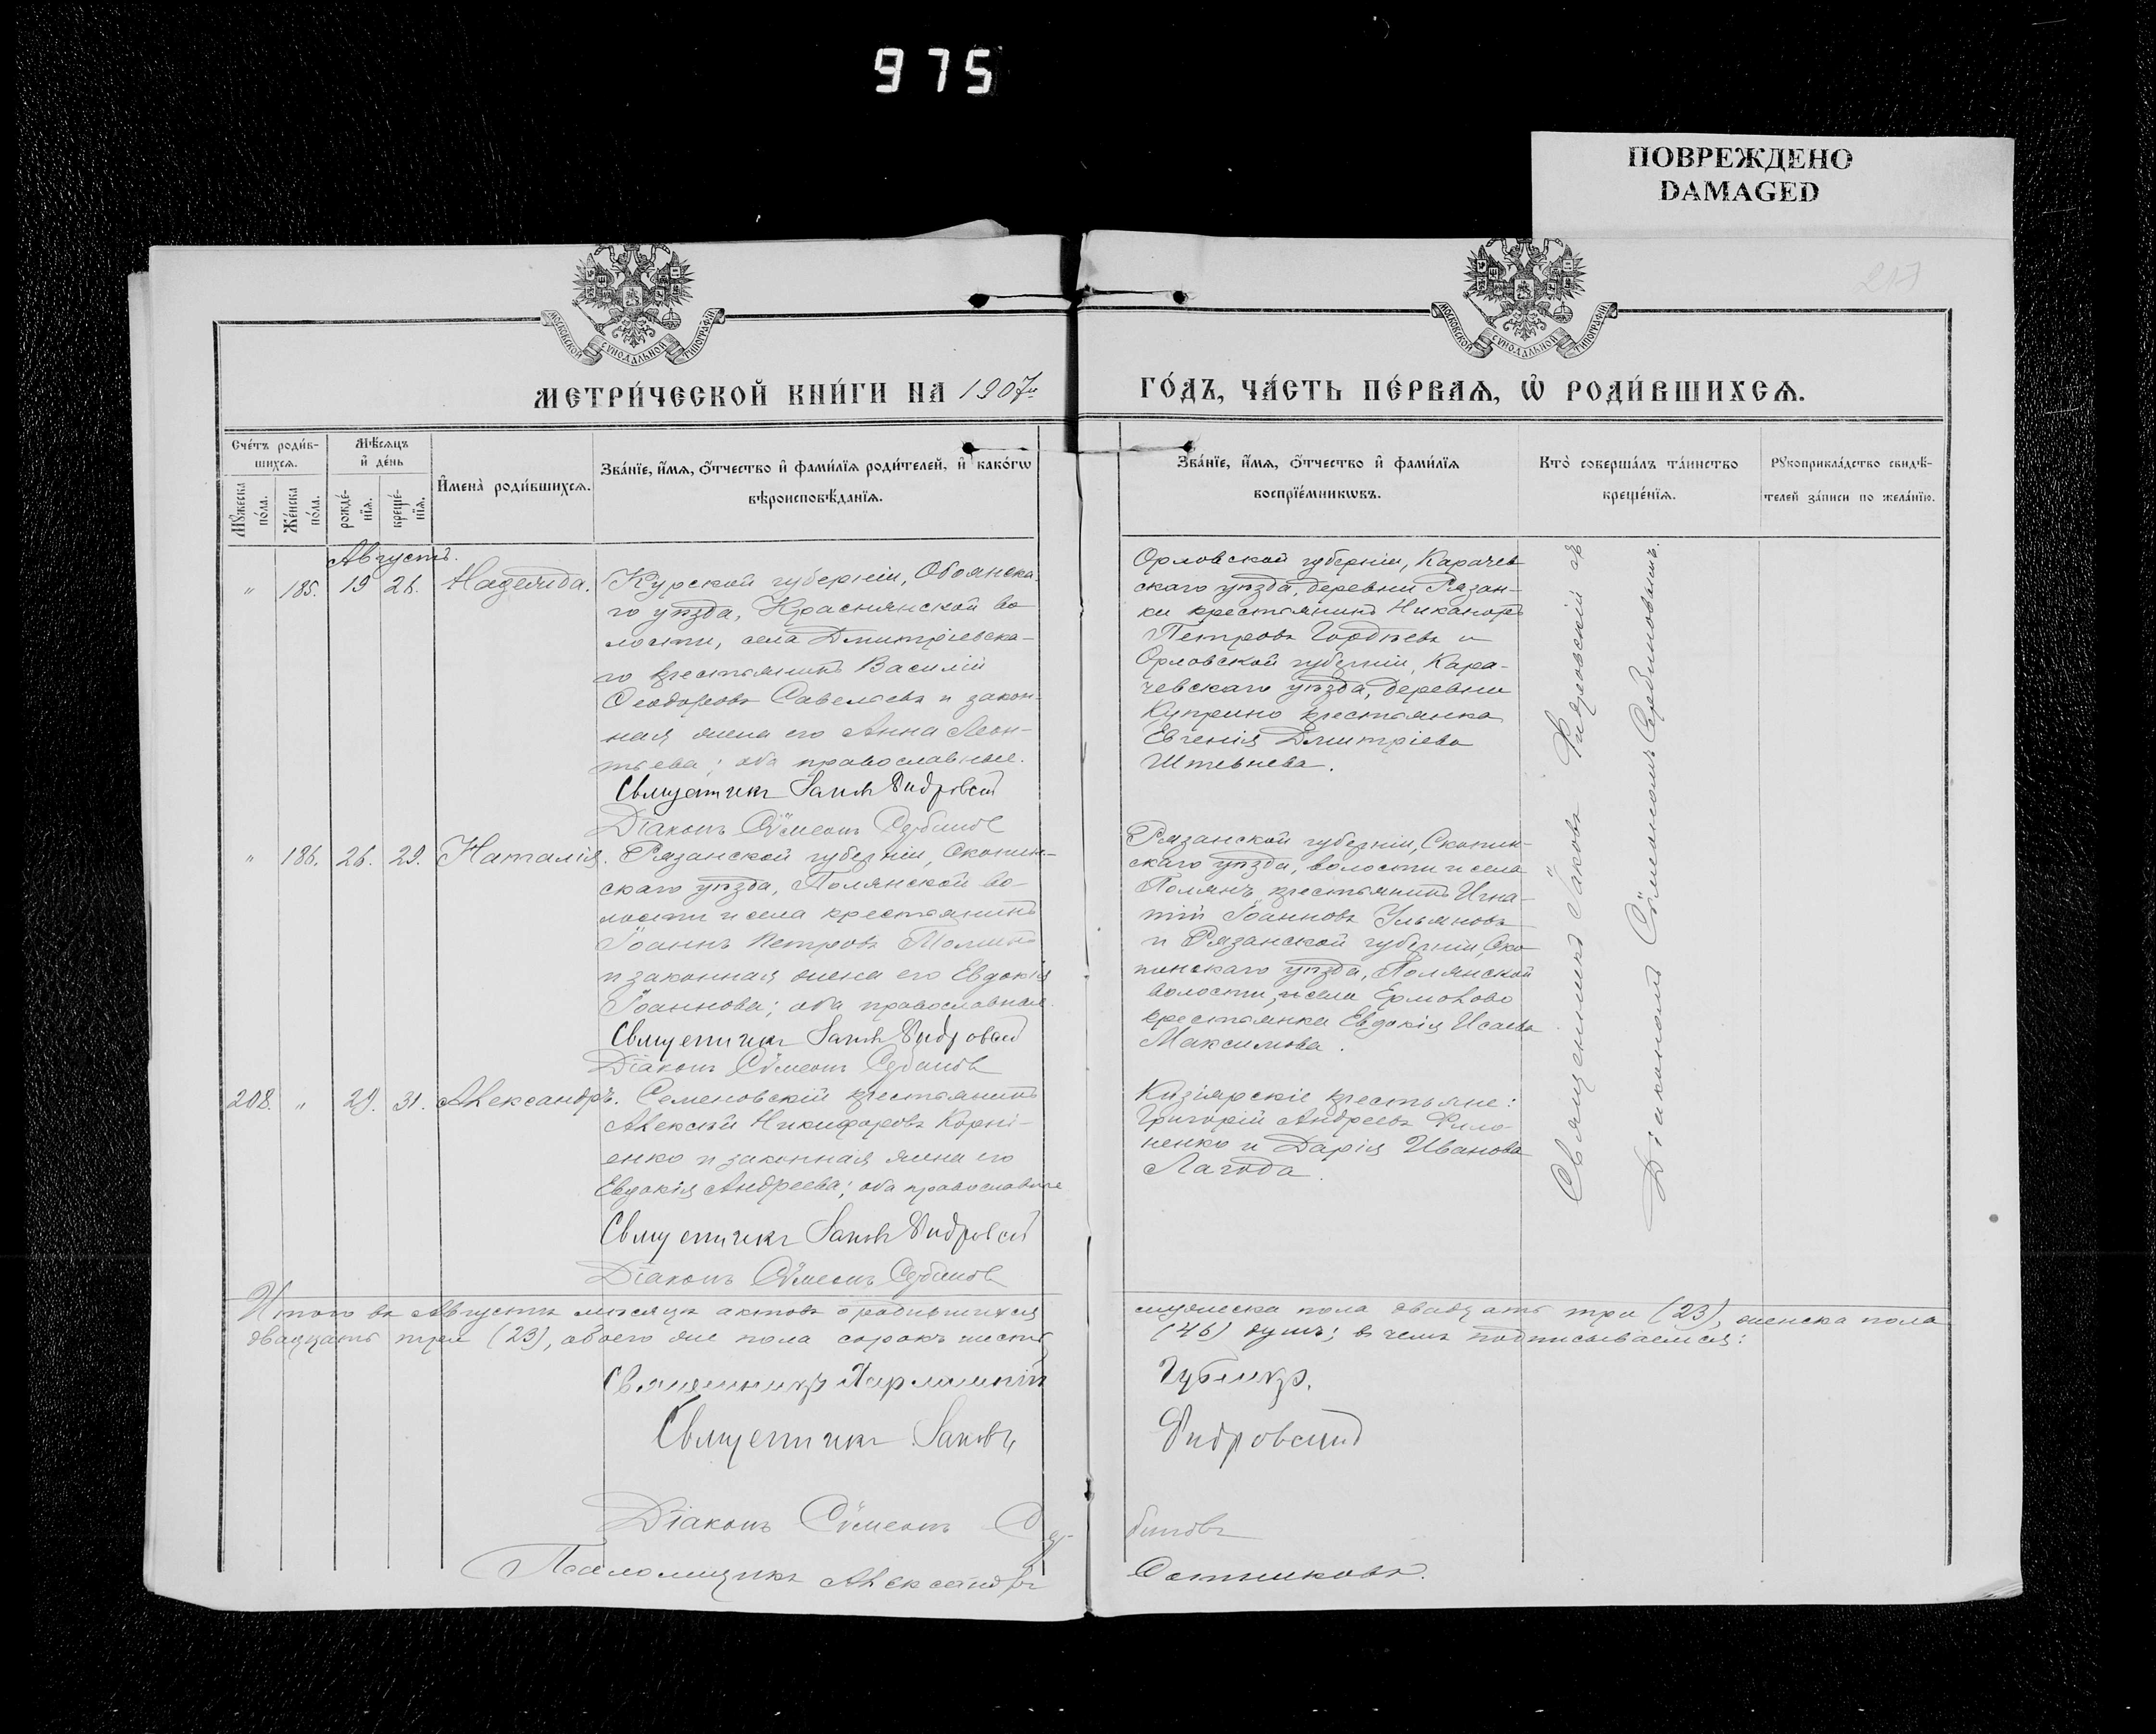 975
ПОВРЕЖДЕНО
DAMAGED
217
МОСКОВСКОЙ СѴНОДАЛЬНОЙ ТИПОГРАФІИ
МОСКОВСКОЙ СѴНОДАЛЬНОЙ ТИПОГРАФІИ
МЕТРИ́ЧЕСКОЙ КНИ́ГИ НА 1907й
ГО́ДЪ, ЧА́СТЬ ПЕ́РВАѦ, Ѡ҆ РОДИ́ВШИХСѦ.
Сче́тъ роди́в-
шихсѧ.
Мꙋ́жеска по́ла.
Же́нска по́ла.
Мѣ́сѧцъ
и҆ де́нь
рожде́-
нїѧ.
креще́-
нїѧ.
И҆мена̀ роди́вшихсѧ.
Зва́нїе, и҆́мѧ, ѻ҆́тчество и҆ фами́лїѧ роди́телей, и҆ како́гѡ
вѣроисповѣ́данїѧ.
Зва́нїе, и҆́мѧ, ѻ҆́тчество и҆ фами́лїѧ
воспрїе́мникѡвъ.
Кто̀ соверша́лъ та́инство
креще́нїѧ.
Рꙋкоприкла́дство свидѣ́-
телей за́писи по жела́нїю.
Августъ.
" 185. 19 26. Надежда. Курской губерніи, Обоянска-
го уѣзда, Краснянской во
лости, села Дмитріевска-
го крестьянинъ Василій
Ѳеодоровъ Савельевъ и закон-
ная жена его Анна Леон-
тьева; оба православные.
Священникъ Іаковъ Фидровскій
Діаконъ Сѵмеонъ Сербиновъ
Орловской губерніи, Карачев
скаго уѣзда, деревни Рязан-
ки крестьянинъ Никаноръ
Петровъ Гордѣевъ и
Орловской губерніи, Кара-
чевскаго уѣзда, деревни
Куприно крестьянка
Евгенія Дмитріева
" 186. 26. 29. Наталія. Рязанской губерніи, Скопин-
скаго уѣзда, Полянской во-
лости и села крестьянинъ
Іоаннъ Петровъ Томинъ
и законная жена его Евдокія
Іоаннова; оба православные.
Священникъ Іаковъ Фидровскій
Діаконъ Сѵмеонъ Сербиновъ
Рязанской губерніи, Скопин-
скаго уѣзда, волости и села
Полянъ крестьянинъ Игна-
тій Іоанновъ Ульяновъ
и Рязанской губерніи, Ско
пинскаго уѣзда, Полянской
волости, села Ермолово
крестьянка Евдокія Исаева
Максимова.
208. " 29. 31. Александръ. Семеновскій крестьянинъ
Алексѣй Никифоровъ Корні-
енко и законная жена его
Евдокія Андреева; оба православные
Священникъ Іаковъ Фидровскій
Діаконъ Сѵмеонъ Сербиновъ
Кизіярскіе крестьяне:
Григорій Андреевъ Фило-
ненко и Дарія Иванова
Лагода.
Священникъ Іаковъ Фидровскій съ
Діакономъ Сѵмеономъ Сербиновымъ.
Итого въ Августѣ мѣсяцѣ актовъ о родившихся
мужеска пола двадцать три (23), женска пола
двадцать три (23), обоего же пола сорокъ шесть
(46) душъ; въ чемъ подписываемся:
Священникъ Харлампій
Губникъ.
Священникъ Іаковъ
Фидровскій
Діаконъ Сѵмеонъ Сер-
биновъ
Псаломщикъ Александръ
Ситниковъ.